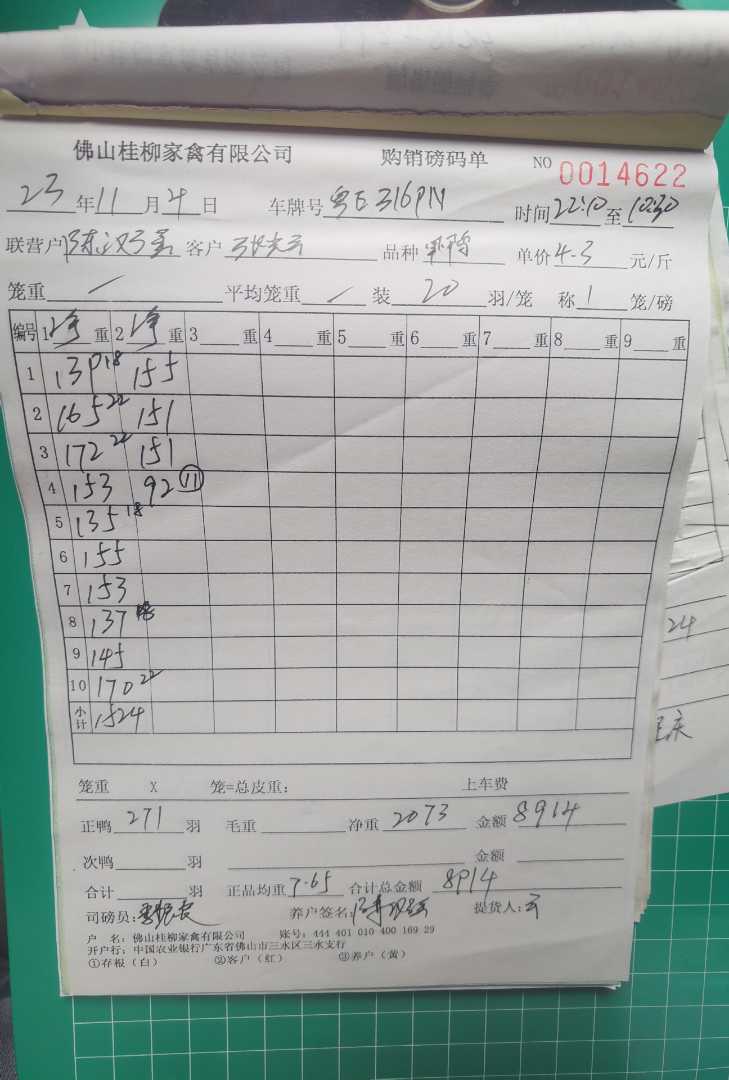 佛山桂柳家禽有限公司 购销磅码单 NO 0014622
23年11月4日 车牌号粤E316PN 时间22:10至10:30
联营户陈 客户张 品种 单价4.3元/斤
笼重 / 平均笼重 / 装20羽/笼 称1笼/磅
编号 1净重 2净重 3重 4重 5重 6重 7重 8重 9重
1 139 18 155
2 165 22 151
3 172 22 151
4 153 92 ⑪
5 135 18
6 155
7 153
8 137 18
9 145
10 170 22
小计 1524
笼重 X 笼=总皮重: 上车费
正鸭271羽 毛重 净重2073 金额8914
次鸭 羽 金额
合计 羽 正品均重7.65 合计总金额8914
司磅员: 养户签名: 提货人:云
户 名: 佛山桂柳家禽有限公司 账号: 444 401 010 400 169 29
开户行: 中国农业银行广东省佛山市三水区三水支行
①存根(白) ②客户(红) ③养户(黄)
24
庆